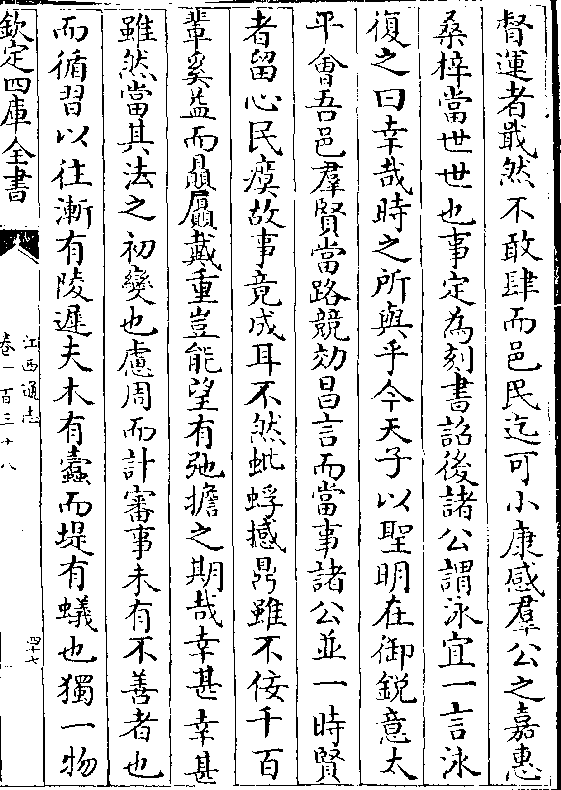 督運者戢然不敢肆而邑民迄可小康感羣公之嘉惠
桑梓當世世也事定為刻書詔後諸公謂泳宜一言泳
復之曰幸哉時之所與乎今天子以聖明在御鋭意太
平會吾邑羣賢當路競効昌言而當事諸公並一時賢
者留心民瘼故事竟成耳不然蚍蜉撼鼎雖不佞千百
輩奚益而贔屭戴重豈能望有弛擔之期哉幸甚幸甚
雖然當其法之初變也慮周而計審事未有不善者也
而循習以往漸有陵遲夫木有蠹而堤有蟻也獨一物
欽定四庫全書
江西通志
卷一百三十八
四十七